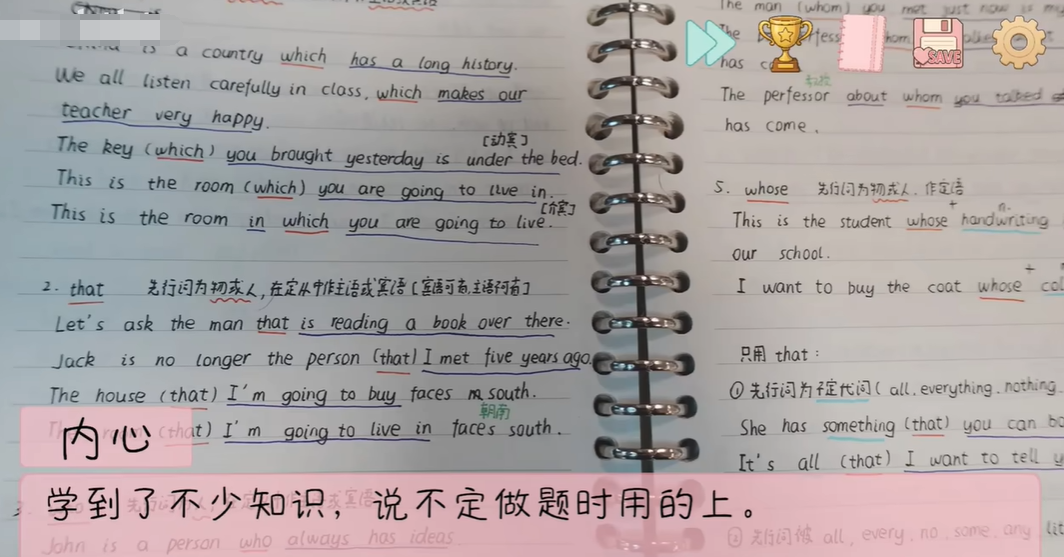 is a country which has a long history.
We all listen carefully in class, which makes our
teacher very happy.
[动宾]
The key (which) you brought yesterday is under the bed.
This is the room (which) you are going to live in.
[介宾]
This is the room in which you are going to live.
2. that 先行词为物或人,在定从中作主语或宾语[宾语可省,主语不可省]
Let's ask the man that is reading a book over there.
Jack is no longer the person (that) I met five years ago.
The house (that) I'm going to buy faces south.
朝南
(that) I'm going to live in faces south.
John is a person who always has ideas
The man (whom) you met just now is my
The
has
The perfessor about whom you talked
has come.
5. whose 先行词为物或人.作定语
+ n.
This is the student whose handwriting
our school.
+
I want to buy the coat whose col
只用 that:
① 先行词为不定代词( all, everything, nothing
She has something (that) you can bo
It's all (that) I want to tell y
② 先行词被 all, every, no, some, any, lit
SAVE
内心
学到了不少知识,说不定做题时用的上。